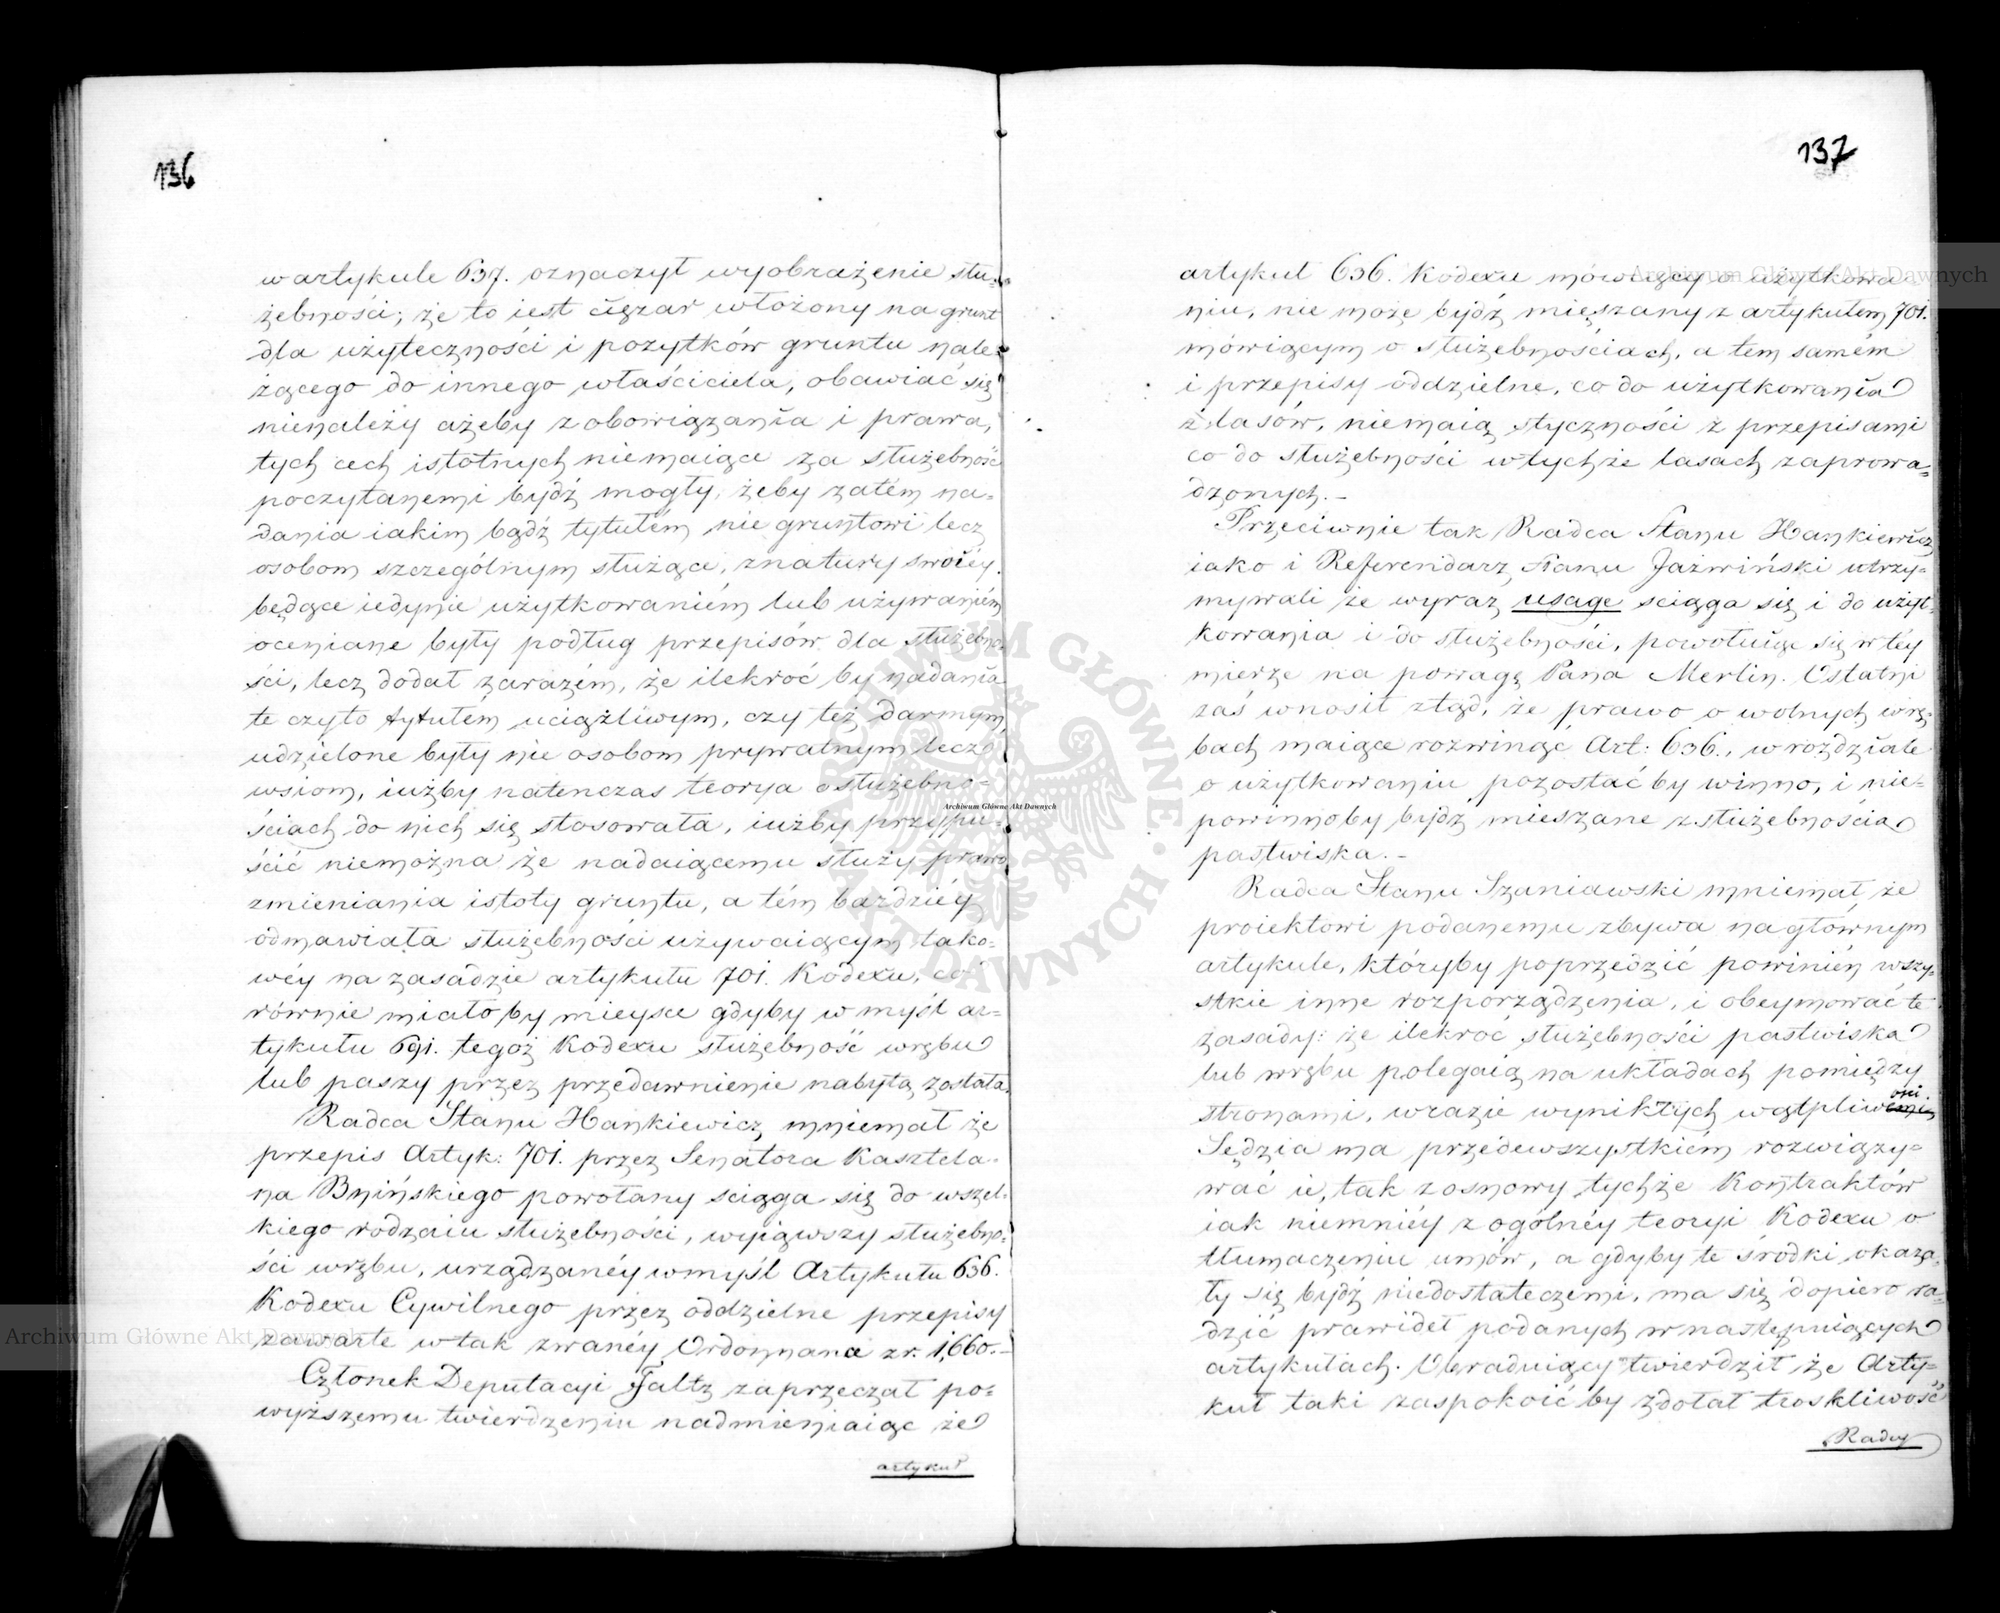 136
w artykule 637. oznaczył wyobrażenie słu-
żebności; że to iest ciężar włożony na grunt
dla użyteczności i pozytków gruntu nale-
żącego do innego właściciela, obawiać się
nienależy ażeby zobowiązania i prawa,
tych cech istotnych niemaiące za służebność
poczytanemi bydź mogły, żeby zatém na-
dania iakim bądź tytułém nie gruntowi lecz
osobom szczególnym służące, znatury swoiéy
będące iedynie użytkowaniém lub używaniém
oceniane były podług przepisów dla służebno-
ści, lecz dodał zarazém, że ilekroć by nadania
te czyto tytułém uciążliwym, czy też darmym
udzielone były nie osobom prywatnym lecz
wsiom, iużby natenczas teorya o służebno-
ściach do nich się stosowała, iużby przypu-
ścić niemożna że nadaiącemu służy prawo
zmieniania istoty gruntu, a tém bardziéy
odmawiała służebności używaiącym tako-
wéy na zasadzie artykułu 701. Kodexu, co
równie miałoby mieysce gdyby w myśl ar-
tykułu 691. tegoż Kodexu służebność wrębu
lub paszy przez przedawnienie nabytą została.
Radca Stanu Hankiewicz mniemał że
przepis Artyk: 701. przez Senatora Kasztela-
na Bnińskiego powołany sciąga się do wszel-
kiego rodzaiu służebności, wyiąwszy służebno-
ści wrębu, urządzanéy wmyśl Artykułu 636.
Kodexu Cywilnego przez oddzielne przepisy
zawarte w tak zwanéy Ordonnance z r. 1,660.-
Członek Deputacyi Faltz zaprzeczał po-
wyższemu twierdzeniu nadmieniaiąc że
artykuł
137
artykuł 636. Kodexu mówiący o użytkowa-
niu, nie może bydź mięszany z artykułem 701.
mówiącym o służebnościach, a tem samém
i przepisy oddzielne, co do użytkowania
z lasów, niemaią styczności z przepisami
co do służebności w tychże lasach zaprowa-
dzonych.-
Przeciwnie tak Radca Stanu Hankiewicz
iako i Referendarz Stanu Jaźwiński utrzy-
mywali że wyraz usage sciąga się i do użyt-
kowania i do służebności, powołuiąc się w téy
mierze na powagę Pana Merlin. Ostatni
zaś wnosił ztąd, że prawo o wolnych wrę-
bach maiące rozwinąć Art: 636., w rozdziale
o użytkowaniu pozostać by winno, i nie-
powinnoby bydź mieszane z służebnościa
pastwiska.-
Radca Stanu Szaniawski mniemał, że
proiektowi podanemu zbywa na głównym
artykule, któryby poprzedzić powinién wszy-
stkie inne rozporządzenia, i obeymować te
zasady: że ilekroć służebności pastwiska
lub wrębu polegaią na układach pomiędzy
stronami, wrazie wynikłych wątpliwości
Sędzia ma przedewszystkiém rozwiązy-
wać ie, tak z osnowy tychże Kontraktów
iak niemniéy z ogólnéy teoryi Kodexu o
tłumaczeniu umów, a gdyby te środki okaza-
ły się bydź niedostateczemi, ma się dopiero ra-
dzić prawideł podanych w następuiących
artykułach. Obraduiący twierdził że Arty-
kuł taki zaspokoić by zdołał troskliwość
Radcy
Archiwum Główne Akt Dawnych
Archiwum Główne Akt Dawnych
Archiwum Główne Akt Dawnych
ARCHIWUM GŁÓWNE · AKT DAWNYCH ·